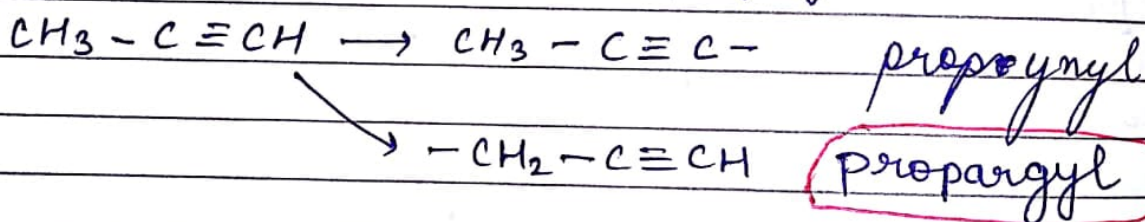 CH3 - C ≡ CH → CH3 - C ≡ C - propynyl
- CH2 - C ≡ CH propargyl